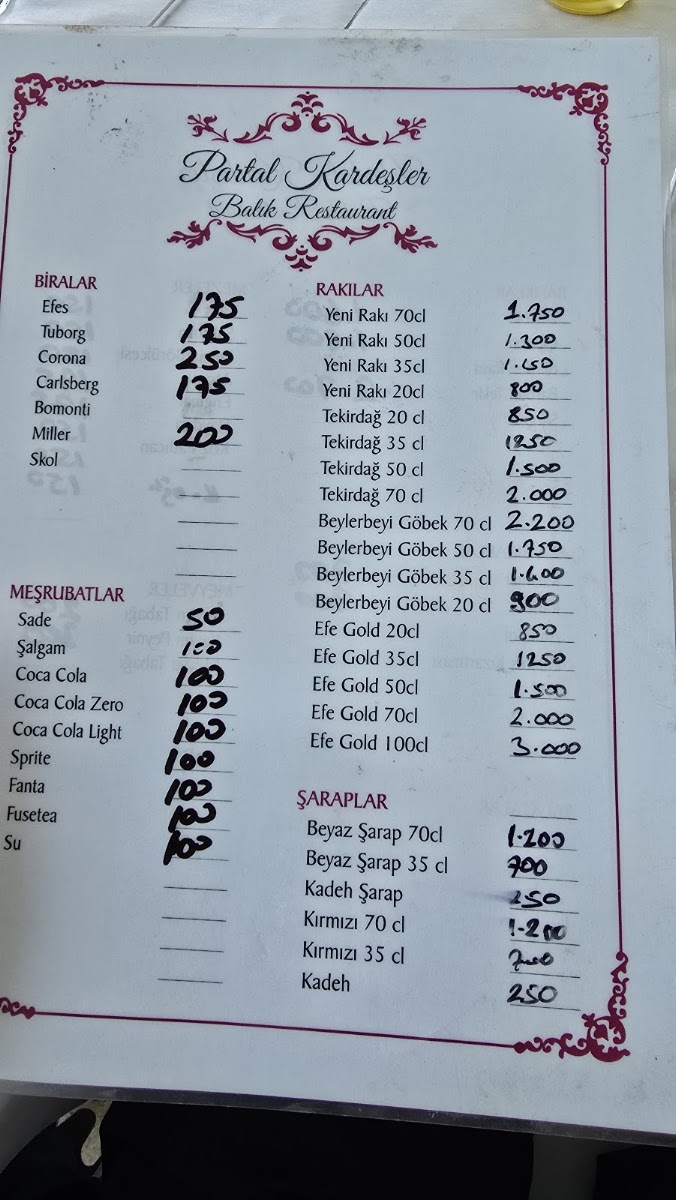 Partal Kardeşler
Balık Restaurant
BİRALAR
Efes 175
Tuborg 175
Corona 250
Carlsberg 175
Bomonti
Miller 200
Skol
MEŞRUBATLAR
Sade 50
Şalgam 100
Coca Cola 100
Coca Cola Zero 100
Coca Cola Light 100
Sprite 100
Fanta 100
Fusetea 100
Su 100
RAKILAR
Yeni Rakı 70cl 1.750
Yeni Rakı 50cl 1.300
Yeni Rakı 35cl
Yeni Rakı 20cl 800
Tekirdağ 20 cl 850
Tekirdağ 35 cl 1250
Tekirdağ 50 cl 1.500
Tekirdağ 70 cl 2.000
Beylerbeyi Göbek 70 cl 2.200
Beylerbeyi Göbek 50 cl 1.750
Beylerbeyi Göbek 35 cl 1.400
Beylerbeyi Göbek 20 cl 900
Efe Gold 20cl 850
Efe Gold 35cl 1250
Efe Gold 50cl 1.500
Efe Gold 70cl 2.000
Efe Gold 100cl 3.000
ŞARAPLAR
Beyaz Şarap 70cl 1.200
Beyaz Şarap 35 cl 700
Kadeh Şarap 250
Kırmızı 70 cl 1.200
Kırmızı 35 cl 700
Kadeh 250